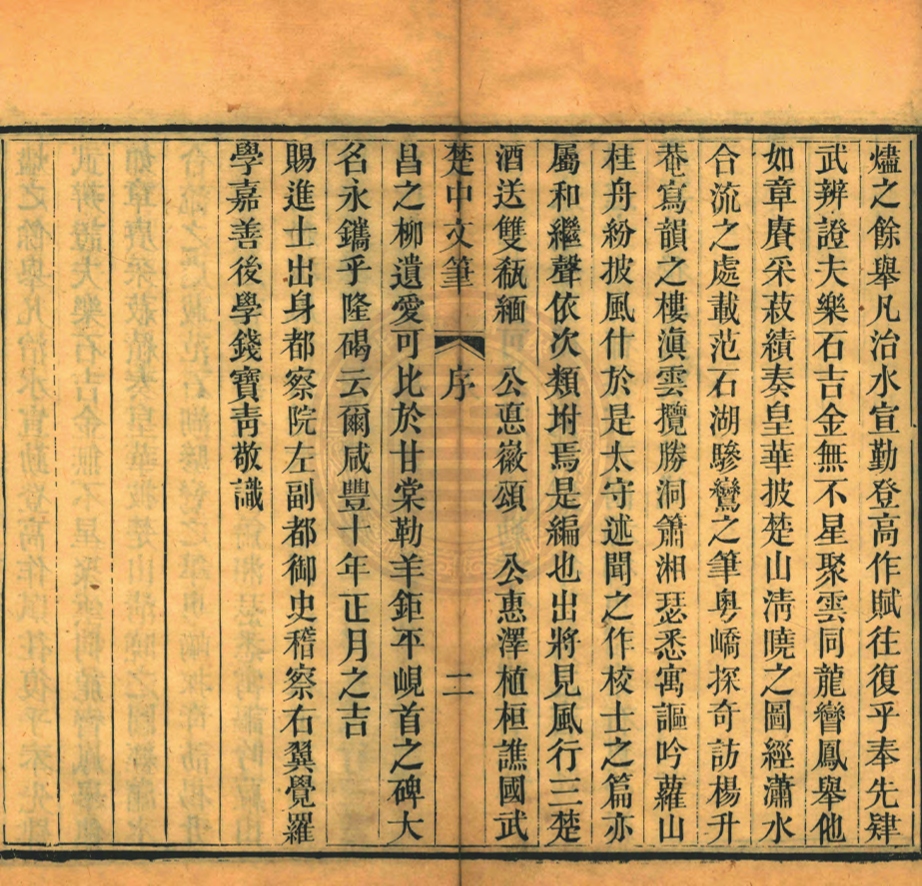 爐之餘舉凡治水宣勤登高作賦往復乎奉先肄
武辨證夫樂石吉金無不星聚雲同龍轡鳳舉他
如章賡采菽績奏皇華披楚山淸曉之圖經瀟水
合流之處載范石湖驂鸞之筆粤嶠探奇訪楊升
菴寫韻之樓滇雲攬勝洞簫湘瑟悉寓謳吟蘿山
桂舟紛披風什於是太守述聞之作校士之篇亦
屬和繼聲依次類坿焉是編也出將見風行三楚
酒送雙瓻緬 公悳徽頌 公惠澤植桓譙國武
楚中文筆 序 二
昌之柳遺愛可比於甘棠勒羊鉅平峴首之碑大
名永鐫乎隆碣云爾咸豐十年正月之吉
賜進士出身都察院左副都御史稽察右翼覺羅
學嘉善後學錢寶靑敬識